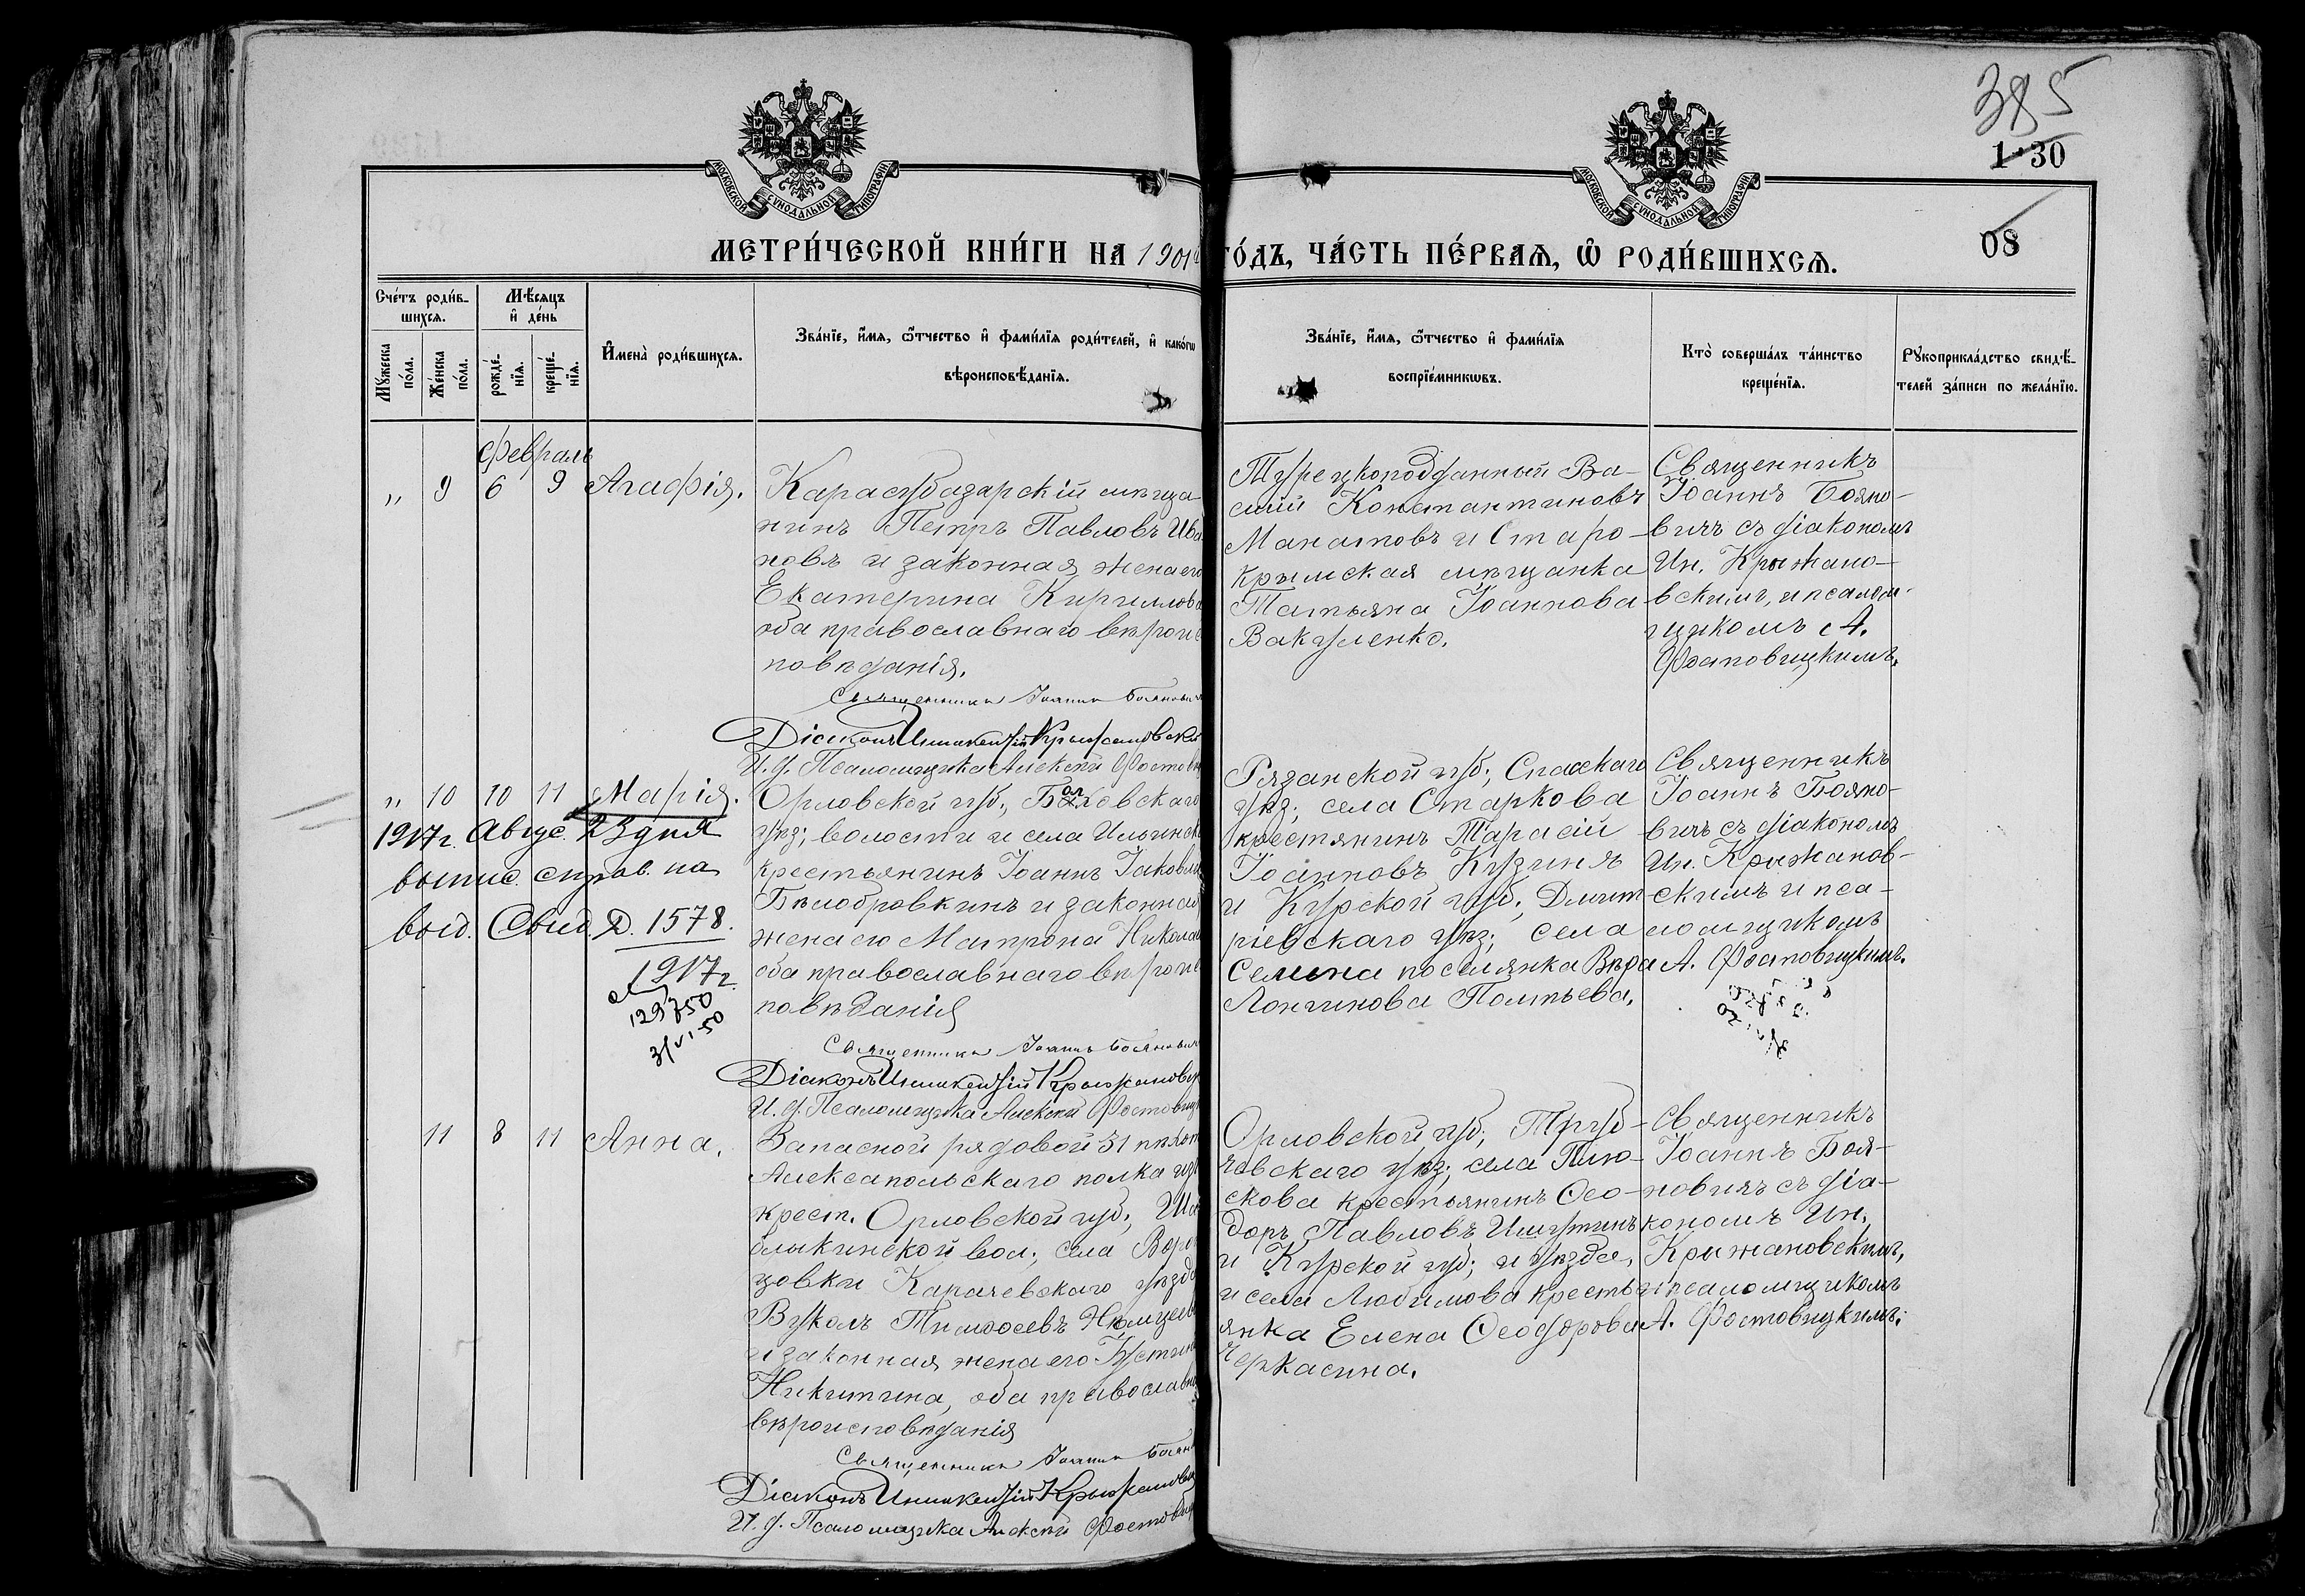 385
1130
08
МОСКОВСКОЙ СѴНОДАЛЬНОЙ ТИПОГРАФІИ
МОСКОВСКОЙ СѴНОДАЛЬНОЙ ТИПОГРАФІИ
МЕТРИ́ЧЕСКОЙ КНИ́ГИ НА 1901
ГО́ДЪ, ЧА́СТЬ ПЕ́РВАѦ, Ѽ РОДИ́ВШИХСѦ.
Сче́тъ роди́в-
шихсѧ.
Мѣ́сѧцъ
и҆ де́нь
Мꙋжеска по́ла.
Же́нска по́ла.
рожде́-нїѧ.
креще́-нїѧ.
И҆мена̀ роди́вшихсѧ.
Зва́нїе, и҆́мѧ, ѻ҆́тчество и҆ фами́лїѧ роди́телей, и҆ како́гѡ
вѣроисповѣ́данїѧ.
Зва́нїе, и҆́мѧ, ѻ҆́тчество и҆ фами́лїѧ
воспрїе́мникѡвъ.
Кто̀ соверша́лъ та́инство
креще́нїѧ.
Рꙋкоприкла́дство свидѣ́-
телей за́писи по жела́нїю.
Февраль
„ 9 6 9 Агафія.
Карасубазарскій мѣща-
нинъ Петръ Павловъ Ива
новъ и законная жена его
Екатерина Кириллова
оба православнаго вѣроис
повѣданія.
Священникъ Іоаннъ Боянович
Діаконъ Иннокентій Крыжановскі
И. д. Псаломщика Алексѣй Фостов
Турецкоподданный Ва-
силій Константиновъ
Манатовъ и Старо-
крымская мѣщанка
Татьяна Іоаннова
Вакуленко.
Священникъ
Іоаннъ Бояно-
вичъ съ діакономъ
Ин. Крыжано-
вскимъ, и псалом-
щикомъ А.
Фостовицкимъ.
„ 10 10 11 Марія.
1917г. Авгус. 23 дня
выпис. справ. на
выд. Свид. Д. 1578.
1917г.
3/VI-50
Орловской губ., Болховскаго
уѣз; волости и села Ильинск
крестьянинъ Іоаннъ Іаковл
Бѣлобровкинъ и законная
жена его Матрона Никола
оба православнаго вѣроис
повѣданія
Священникъ Іоаннъ Боянович
Діаконъ Иннокентій Крыжановск
И. д. Псаломщика Алексѣй Фостовиц
Рязанской губ; Спасскаго
уѣз; села Старкова
крестянинъ Тарасій
Іоанновъ Кузинъ
и Курской губ; Дмит-
ріевскаго уѣз; села
Семена поселянка Вѣра
Лонгинова Полтьева.
Священникъ
Іоаннъ Бояно-
вичъ съ діакономъ
Ин. Крыжанов-
скимъ и пса-
ломщикомъ
А. Фостовицкимъ.
11 8 11 Анна.
Запасной рядовой 31 пѣхот
Алексапольскаго полка изъ
крест. Орловской губ;
блыкинской вол; села
цовки Карачевскаго уѣзда
Вуколъ Тимофеевъ
и законная жена его Іустин
Никитина, оба православна
вѣроисповѣданія
Священникъ Іоаннъ Боян
Діаконъ Иннокентій Крыжановск
И. д. Псаломщика Алексѣй Фостовиц
Орловской губ; Труб-
чевскаго уѣз; села Плю-
скова крестьянинъ Ѳео-
доръ Павловъ Ишутинъ
и Курской губ; и уѣзда,
и села Любимова кресть-
янка Елена Ѳеодорова
Черкасина.
Священникъ
Іоаннъ Боя-
новичъ съ діа-
кономъ Ин.
Крыжановскимъ,
и псаломщикомъ
А. Фостовицкимъ.